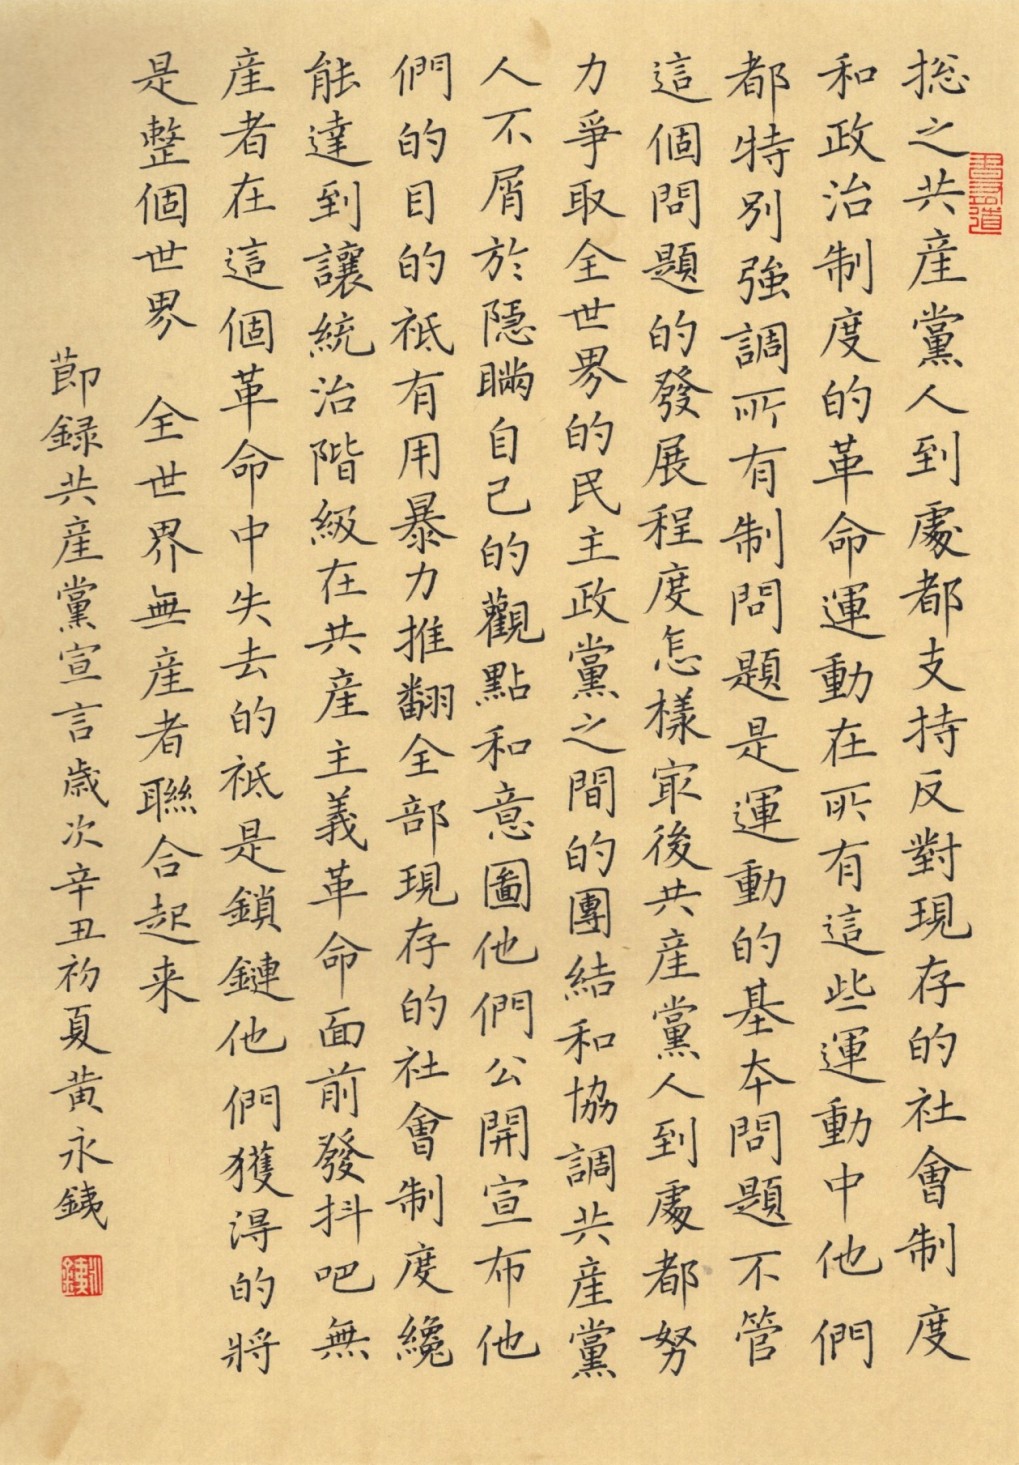 捴之共産黨人到處都支持反對現存的社會制度
和政治制度的革命運動在所有這些運動中他們
都特別強調所有制問題是運動的基本問題不管
這個問題的發展程度怎樣冣後共産黨人到處都努
力爭取全世界的民主政黨之間的團結和協調共産黨
人不屑於隱瞞自己的觀點和意圖他們公開宣布他
們的目的祗有用暴力推翻全部現存的社會制度纔
能達到讓統治階級在共産主義革命面前發抖吧無
産者在這個革命中失去的祗是鎖鏈他們獲得的將
是整個世界 全世界無産者聯合起来
莭録共産黨宣言歲次辛丑初夏黄永銕